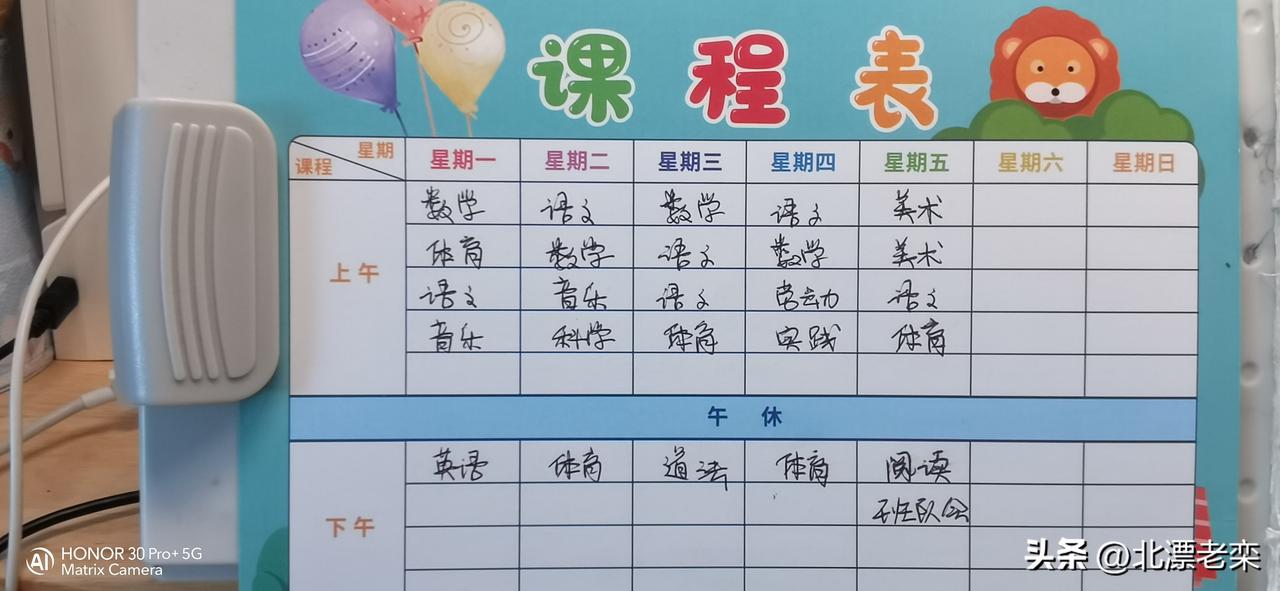 课程表
星期
课程
星期一 星期二 星期三 星期四 星期五 星期六 星期日
数学 语文 数学 语文 美术
上午
体育 数学 语文 数学 美术
语文 音乐 语文 劳动 语文
音乐 科学 体育 实践 体育
午休
下午
英语 体育 道法 体育 阅读
班队会
AI HONOR 30 Pro+ 5G
Matrix Camera
头条 @北漂老栾